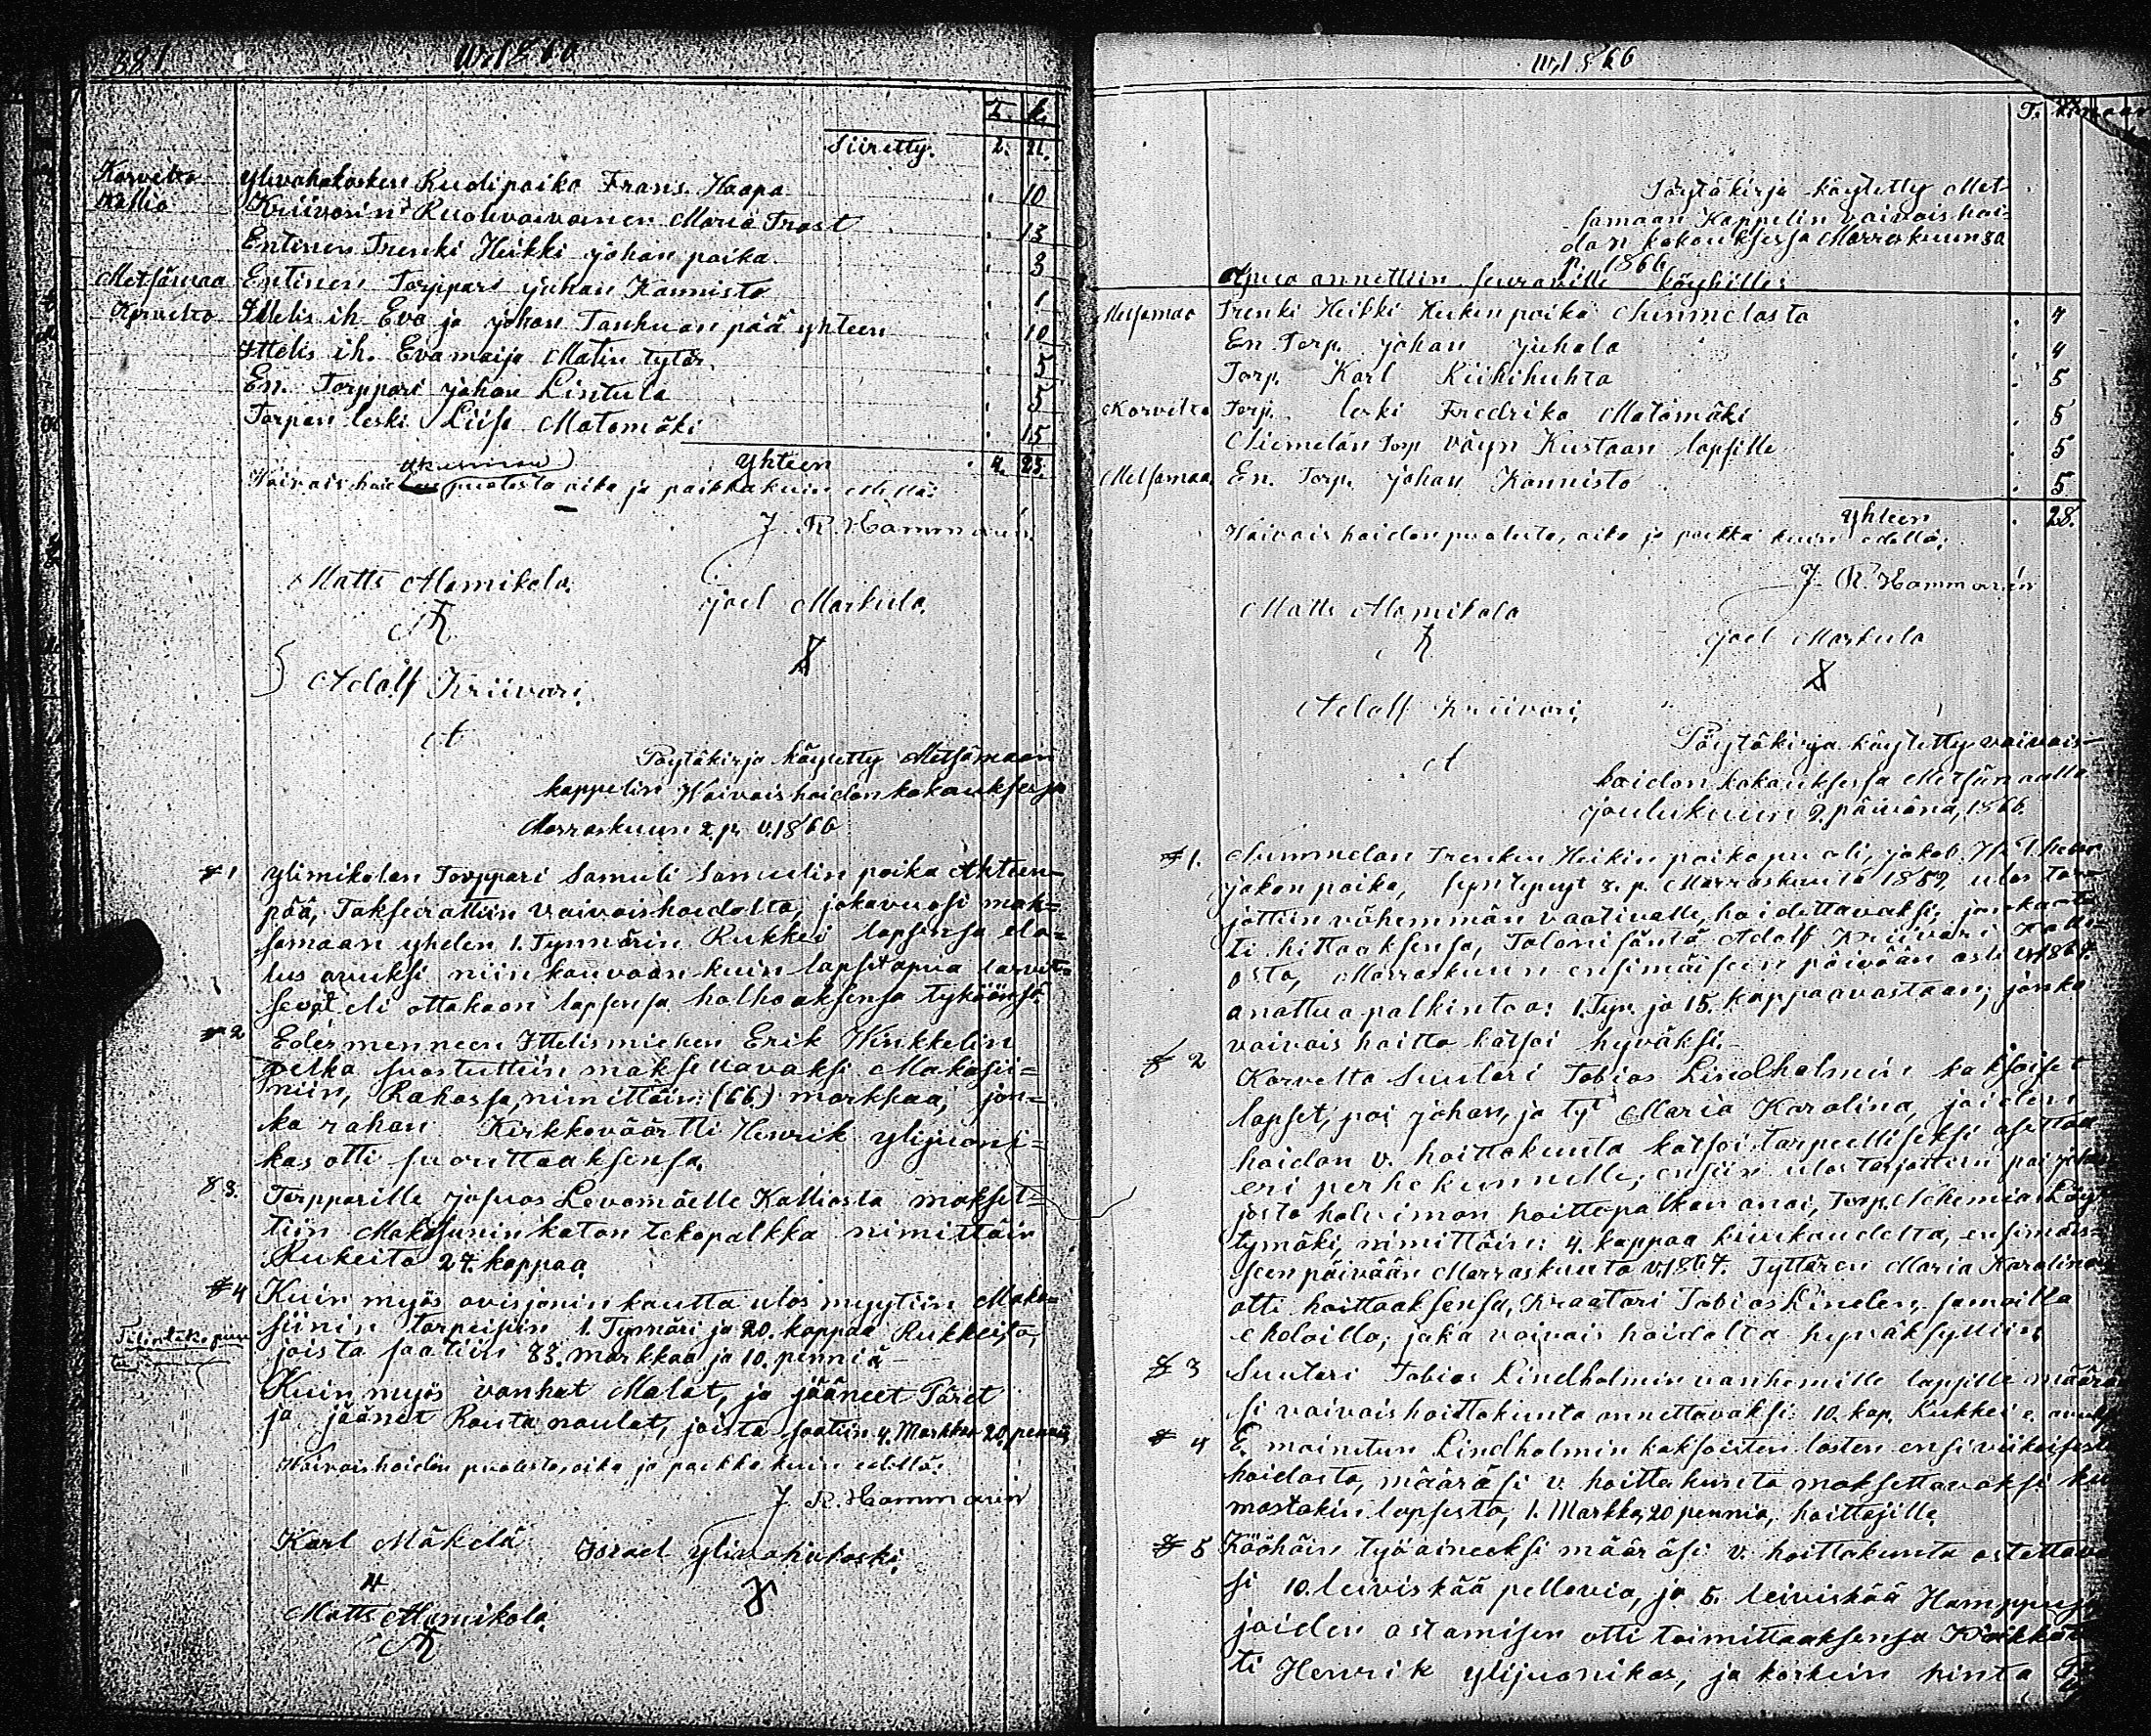 381 w. 1866
T. k.
Siiretty. 2. 21.
Korvelta Ylivahakosken Ruotipoika Frans Haapa . 10
Kallio Kriivarin Ruotivaivainen Maria Trast . 13
Entinen Trenki Heikki Johan poika . 3
Metsämaa Entinen Torppari Juhan Kannisto . 1
Korvelta Ittelis ih. Eva ja Johan Tanhuanpää yhteen . 10
Ittelis ih. Evamaija Matin tytär . 5
En. Torppari Johan Lintula . 5
Torpan leski Liisa Matomäki . 15
Yhteen . 4. 23.
Waivaishoidon puolesta aika ja paikka kuin edellä:
J. R. Hammarén
Matts Alamikola.
Joel Markula.
Adolf Kriivari.
Pöytäkirja käytetty Metsämaan
kappelin Waivaishoidon kokouksessa
Marraskuun 2. p. v. 1866
§ 1 Ylimikolan Torppari Samuli Samulin poika Ahteen-
pää, Takseirattiin vaivaishoidolta, jokavuosi mak=
samaan yhden 1. Tynnärin Rukkei lapsensa ela=
tus avuksi niin kauvoan kuin lapset apua tarvit=
sevat eli ottakoon lapsensa holhoaksensa tyköönsä.
§ 2 Edesmenneen Ittelismiehen Erik Winkkelin
velka suostuttiin maksettavaksi Makasii=
niin, Rahassa, nimittäin: (66.) markkaa, jon=
ka rahan Kirkkoväärtti Henrik Ylijuoni=
kas otti suorittaaksensa.
§ 3. Torpparille Josuas Levomäelle Kalliosta makset=
tiin Makasiinin katon tekopalkka nimittäin
Rukeita 24. kappaa.
§ 4 Kuin myös avisjonin kautta ulos myytiin Maka=
siinin tarpeisiin 1. Tynnäri ja 20. kappaa Rukkeita,
joista saatiin 83. markkaa ja 10. penniä -
Kuin myös vanhat Malat, ja jääneet Päret
ja jäänet Rauta naulat, joista saatiin 4. Markkaa 20. penniä
Waivaishoidon puolesta, aika ja paikka kuin edellä:
J. R. Hammarén
Karl Mäkelä Israel Ylivahakoski.
Matts Alamikola.
w. 1866
T.
Pöytäkirja käytetty Met-
sämaan Kappelin vaivaishoi-
don kokouksessa Marraskuussa
1866
Apua annettiin seuraville köyhille:
Metsämaa Trenki Heikki Heikin poika Nummelasta . 4
En. Torp. Johan Juhala . 4
Torp. Karl Riihihuhta . 5
Korvelta Torp. leski Fredrika Matomäki . 5
Niemelän Torp. väyn Kustaan lapsille . 5
Metsämaa. En. Torp. Johan Kannisto . 5
Yhteen . 28.
Waivaishoidon puolesta, aika ja paikka kuin edellä:
J. R. Hammarén
Matts Alamikola
Joel Markula
Adolf Kriivari.
Pöytäkirja käytetty vaivais-
hoidon kokouksessa Metsämaalla
Joulukuun 2. päivänä, 1866.
§ 1. Nummelan Trenkin Heikin poikapuoli, Jakob
Jakon poika, syntynyt 8. p. Marraskuuta 1859, ulos tar-
jottiin vähemmän vaativalle hoidettavaksi, jonka ot-
ti hittaaksensa, Talonisäntä Adolf Kriivari Kalli-
osta, Marraskuun ensimäiseen päivään asti v. 1867.
anottua palkintoa: 1. Tyn. ja 15. kappaa vastaan; jonka
vaivais hoitto katsoi hyväksi. -
§ 2 Korvelta Suutari Tobias Lindholmin kaksoiset
lapset, poi Johan, ja tyt Maria Karolina, joiden
hoidon v. hoittokunta katsoi tarpeelliseksi asettaa
eri perhekunnille; ensin ulos tarjottiin poi Johan
josta halvimman hoittopalkan anoi, Torp. Nehemias Löyt-
tymäki, nimittäin: 4. kappaa kuukaudelta, ensimäis=
seen päivään Marraskuuta v. 1867. Tyttären Maria Karolinan
otti hoittaaksensa, Kraatari Tobias Linden, samoilla
eholoilla; joka vaivais hoidolta hyväksyttiin.
§ 3 Suutari Tobias Lindholmin vanhemille lapsille määrä-
si vaivaishoittokunta annettavaksi 10. kap. Rukkei e. avuksi
§ 4 E. mainitun Lindholmin kaksoisten lasten ensi viikoisesta
hoidosta, määräsi v. hoittokunta maksettavaksi ku
mastakin lapsesta, 1. Markka, 20 penniä, hoittajille.
§ 5 Köyhäin työaineeksi määräsi v. hoittokunta ostettavak
si 10. leiviskää pellavia, ja 5. leiviskää Hamppuja
joiden ostamisen otti toimittaaksensa Kirkkovär
ti Henrik Ylijuonikas, ja korkein hinta